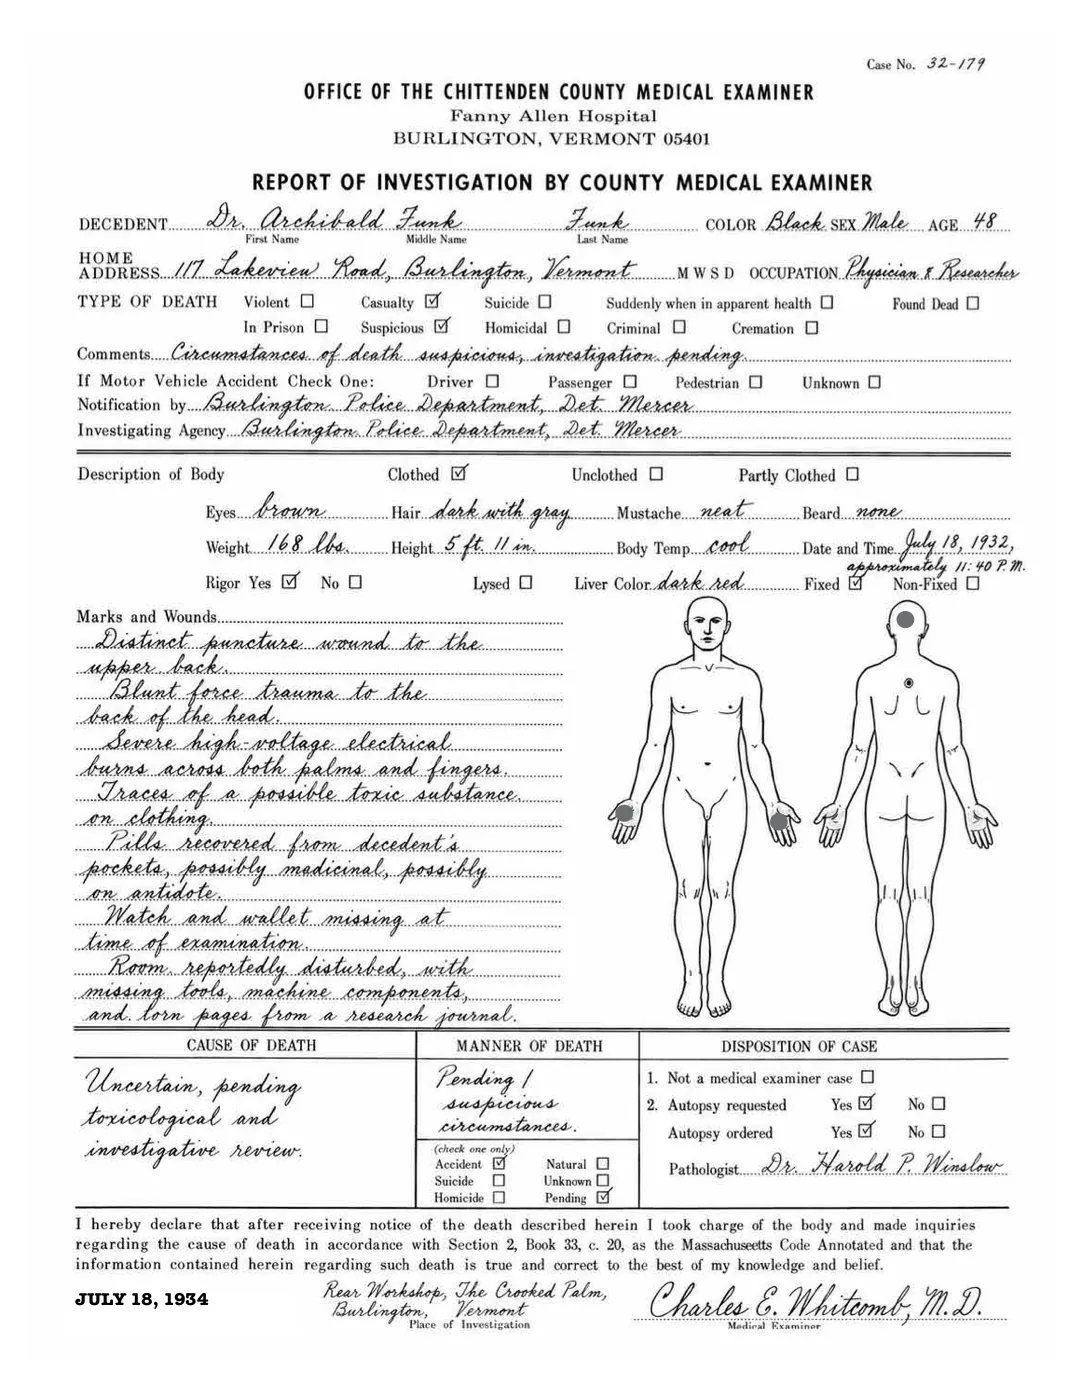 Case No. 32-179
OFFICE OF THE CHITTENDEN COUNTY MEDICAL EXAMINER
Fanny Allen Hospital
BURLINGTON, VERMONT 05401
REPORT OF INVESTIGATION BY COUNTY MEDICAL EXAMINER
DECEDENT Dr. Archibald Funk Funk COLOR Black SEX Male AGE 48
First Name Middle Name Last Name
HOME
ADDRESS 117 Lakeview Road, Burlington, Vermont M W S D OCCUPATION Physician & Researcher
TYPE OF DEATH Violent ☐ Casualty ☑ Suicide ☐ Suddenly when in apparent health ☐ Found Dead ☐
In Prison ☐ Suspicious ☑ Homicidal ☐ Criminal ☐ Cremation ☐
Comments Circumstances of death suspicious, investigation pending.
If Motor Vehicle Accident Check One: Driver ☐ Passenger ☐ Pedestrian ☐ Unknown ☐
Notification by Burlington Police Department, Det. Mercer
Investigating Agency Burlington Police Department, Det. Mercer
Description of Body Clothed ☑ Unclothed ☐ Partly Clothed ☐
Eyes brown Hair dark with gray Mustache neat Beard none
Weight 168 lbs. Height 5 ft. 11 in. Body Temp cool Date and Time July 18, 1932,
approximately 11:40 P.M.
Rigor Yes ☑ No ☐ Lysed ☐ Liver Color dark red Fixed ☑ Non-Fixed ☐
Marks and Wounds
Distinct puncture wound to the
upper back.
Blunt force trauma to the
back of the head.
Severe high-voltage electrical
burns across both palms and fingers.
Traces of a possible toxic substance
on clothing.
Pills recovered from decedent's
pockets, possibly madicinal, possibly
on antidote.
Watch and wallet missing at
time of examination.
Room reportedly disturbed, with
missing tools, machine components,
and torn pages from a research journal.
CAUSE OF DEATH
Uncertain, pending
toxicological and
investigative review.
MANNER OF DEATH
Pending /
suspicious
circumstances.
(check one only)
Accident ☑ Natural ☐
Suicide ☐ Unknown ☐
Homicide ☐ Pending ☑
DISPOSITION OF CASE
1. Not a medical examiner case ☐
2. Autopsy requested Yes ☑ No ☐
Autopsy ordered Yes ☑ No ☐
Pathologist Dr. Harold P. Winslow
I hereby declare that after receiving notice of the death described herein I took charge of the body and made inquiries
regarding the cause of death in accordance with Section 2, Book 33, c. 20, as the Massachuseetts Code Annotated and that the
information contained herein regarding such death is true and correct to the best of my knowledge and belief.
JULY 18, 1934
Rear Workshop, The Crooked Palm,
Burlington, Vermont
Place of Investigation
Charles E. Whitcomb, M.D.
Medical Examiner